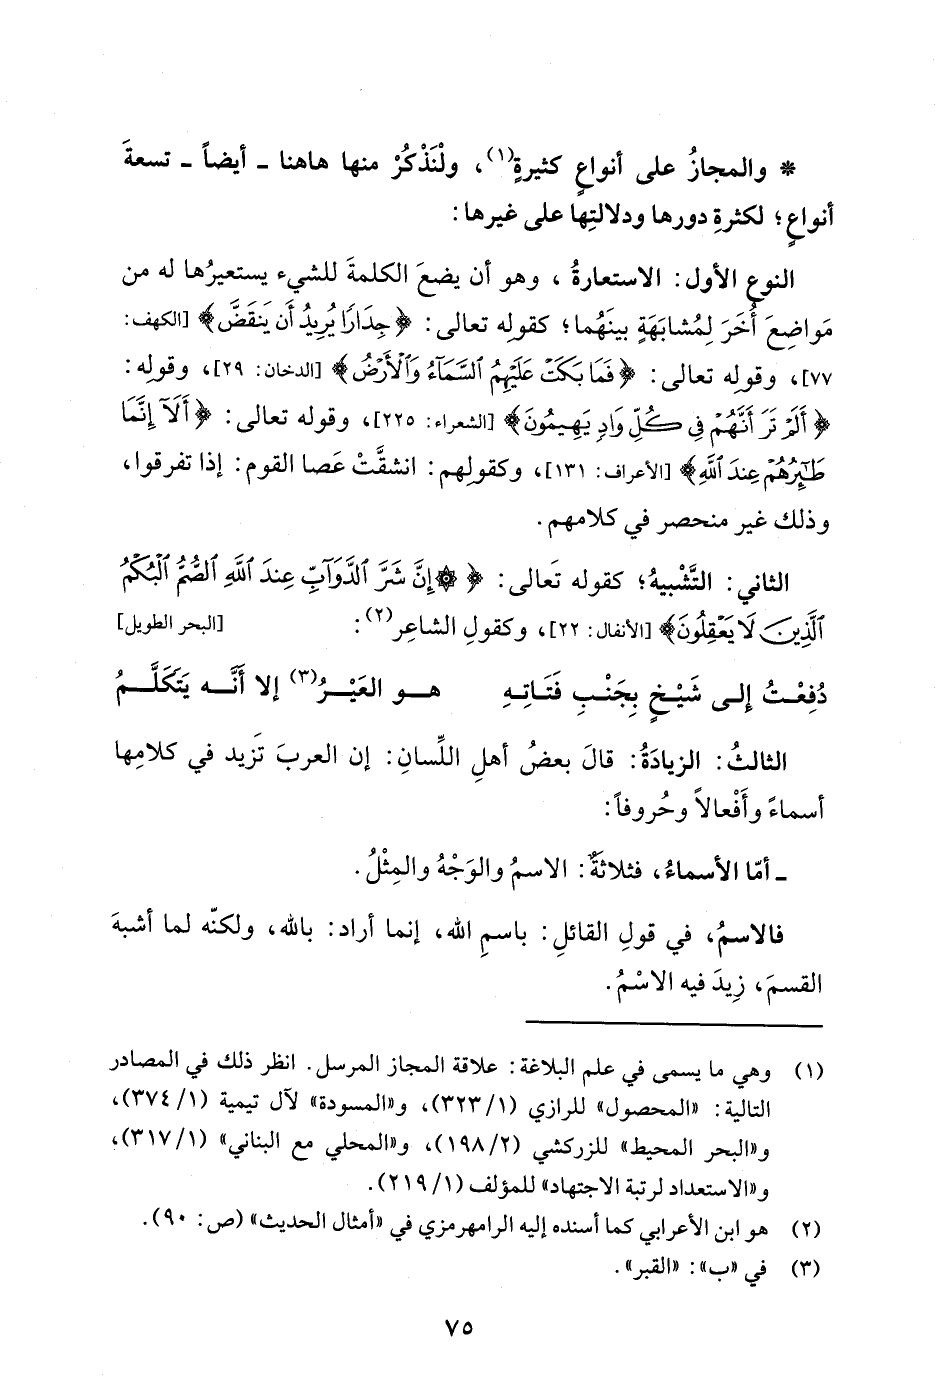 * والمجازُ على أنواعٍ كثيرةٍ(١)، ولْنَذْكُرْ منها هاهنا ـ أيضاً ـ تسعةَ
أنواعٍ؛ لكثرةِ دورها ودلالتِها على غيرها:
النوع الأول: الاستعارةُ، وهو أن يضعَ الكلمةَ للشيء يستعيرُها له من
مَواضِعَ أُخَرَ لِمُشابَهَةٍ بينَهُما؛ كقولِه تعالى: ﴿جِدَارًا يُرِيدُ أَن يَنقَضَّ﴾ [الكهف:
٧٧]، وقولِه تعالى: ﴿فَمَا بَكَتْ عَلَيْهِمُ السَّمَآءُ وَالْأَرْضُ﴾ [الدخان: ٢٩]، وقولِه:
﴿أَلَمْ تَرَ أَنَّهُمْ فِي كُلِّ وَادٍ يَهِيمُونَ﴾ [الشعراء: ٢٢٥]، وقوله تعالى: ﴿أَلَآ إِنَّمَا
طَٰٓئِرُهُمْ عِندَ اللَّهِ﴾ [الأعراف: ١٣١]، وكقولهم: انشقَّتْ عَصا القوم: إذا تفرقوا،
وذلك غير منحصر في كلامهم.
الثاني: التَّشْبيهُ؛ كقوله تَعالى: ﴿۞ إِنَّ شَرَّ الدَّوَآبِّ عِندَ اللَّهِ الصُّمُّ الْبُكْمُ
الَّذِينَ لَا يَعْقِلُونَ﴾ [الأنفال: ٢٢]، وكقولِ الشاعِر(٢): [البحر الطويل]
دُفِعْتُ إلى شَيْخٍ بِجَنْبِ فَتَاتِهِ هو العَيْرُ(٣) إلا أَنَّه يَتَكَلَّمُ
الثالثُ: الزيادَةُ: قالَ بعضُ أهلِ اللِّسانِ: إن العربَ تَزيد في كلامِها
أسماءً وأَفْعالاً وحُروفاً:
ـ أمّا الأسماءُ، فثلاثةٌ: الاسمُ والوَجْهُ والمِثْلُ.
فالاسمُ، في قولِ القائلِ: باسمِ الله، إنما أراد: بالله، ولكنّه لما أشبهَ
القسمَ، زِيدَ فيه الاسْمُ.
(١) وهي ما يسمى في علم البلاغة: علاقة المجاز المرسل. انظر ذلك في المصادر
التالية: «المحصول» للرازي (١/ ٣٢٣)، و«المسودة» لآل تيمية (١/ ٣٧٤)،
و«البحر المحيط» للزركشي (٢/ ١٩٨)، و«المحلي مع البناني» (١/ ٣١٧)،
و«الاستعداد لرتبة الاجتهاد» للمؤلف (١/ ٢١٩).
(٢) هو ابن الأعرابي كما أسنده إليه الرامهرمزي في «أمثال الحديث» (ص: ٩٠).
(٣) في «ب»: «القبر».
٧٥